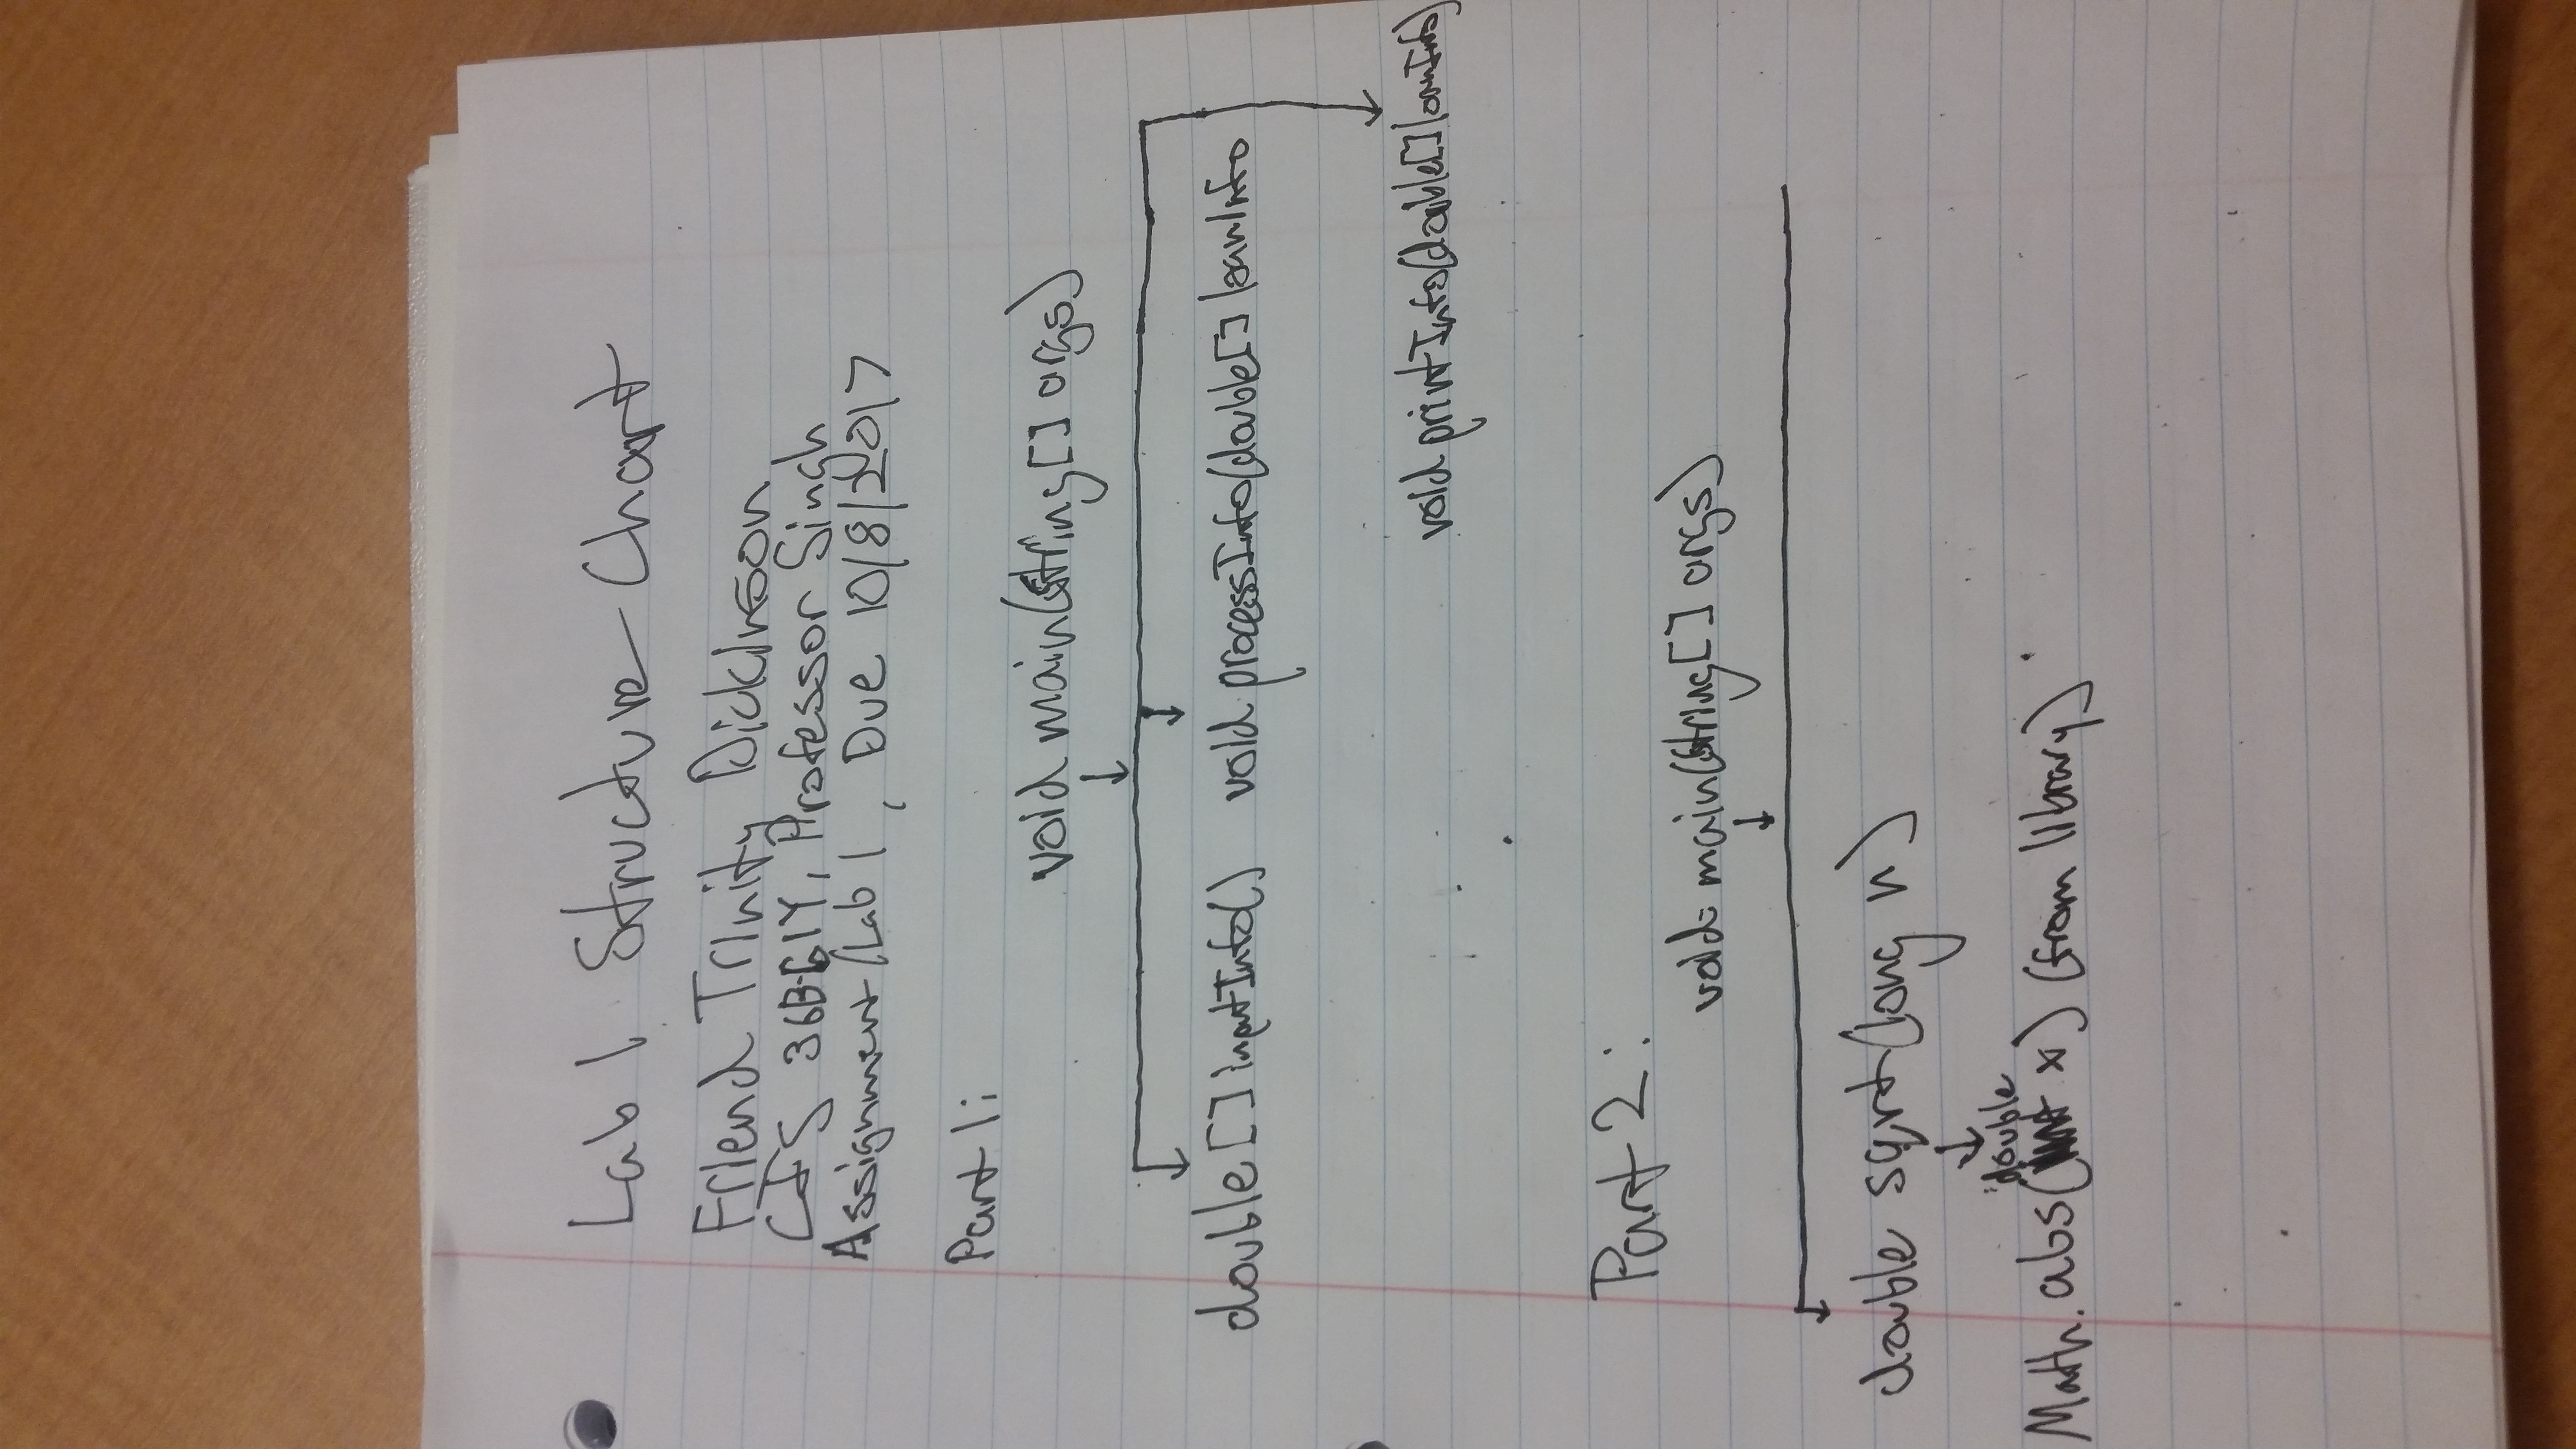 Lab 1 Structure Chart
Friend Trinity Dickinson
CIS 36B-61Y, Professor Singh
Assignment/Lab 1, Due 10/8/2017
Part 1:
void main(String[] args)
double[] inputInfo() void processInfo(double[] loanInfo
void printInfo(double[] loanInfo)
Part 2:
void main(String[] args)
double sqrt(long n)
double
Math.abs(int x) (from library)